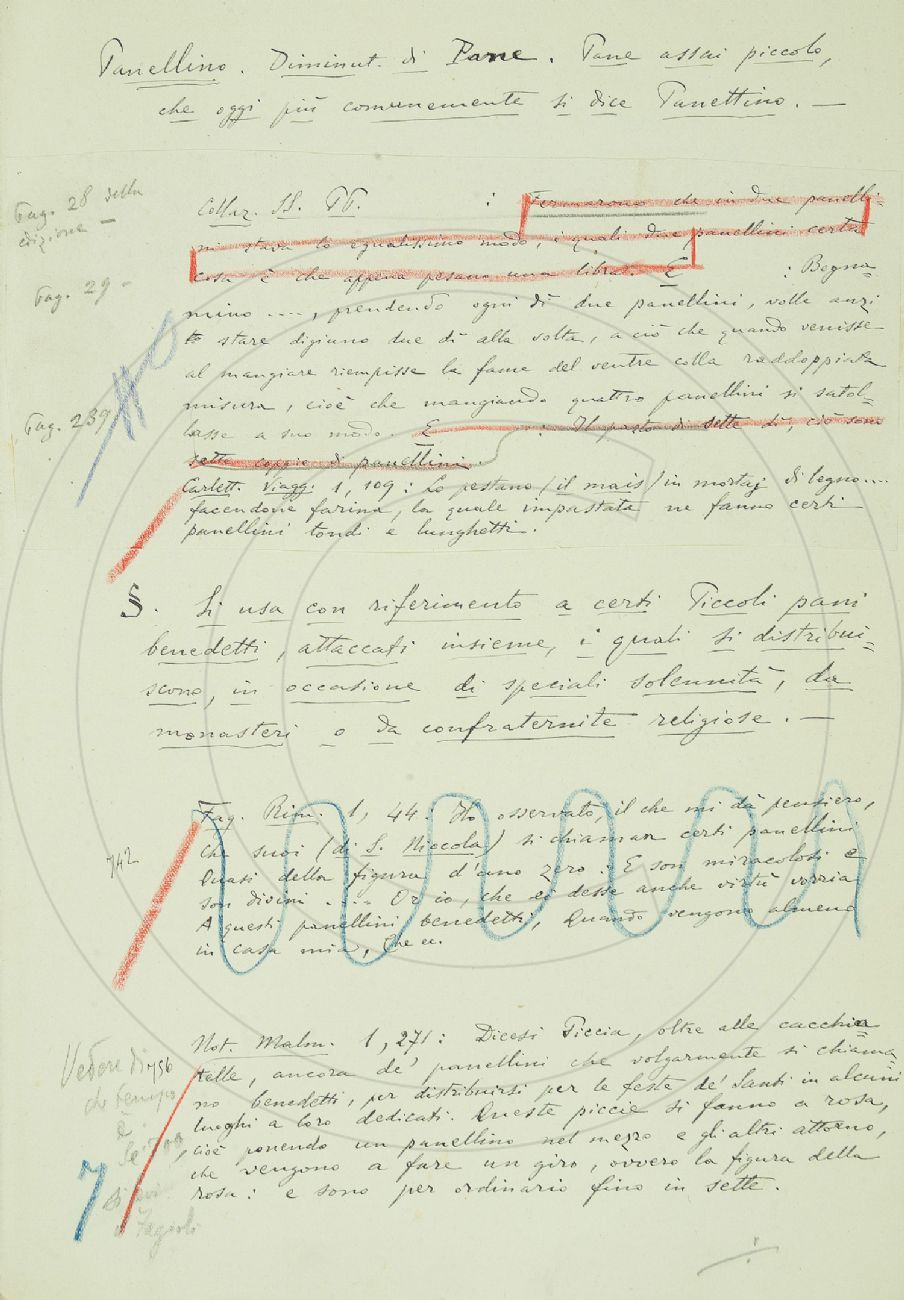 Panellino. Diminut. di Pane. Pane assai piccolo,
che oggi più comunemente si dice Panettino. —
Pag. 28 della
edizione —
Collaz. SS. PP. : Fermarono che in due panelli-
ni stava lo egualissimo modo, i quali due panellini certa
cosa è che appena pesano una libra. E : Begna-
Pag. 29 -
mino ...., prendendo ogni dì due panellini, volle anzi
stare digiuno due dì alla volta, a ciò che quando venisse
al mangiare riempisse la fame del ventre colla raddoppiata
misura, cioè che mangiando quattro panellini si satol-
Pag. 239
lasse a suo modo. E : Il pasto di sette dì, ciò sono
sette coppie di panellini
Carlett. Viagg. 1, 109: Lo pestano (il mais) in mortaj di legno....
facendone farina, la quale impastata ne fanno certi
panellini tondi e lunghetti.
§. Si usa con riferimento a certi Piccoli pani
benedetti, attaccati insieme, i quali si distribui-
scono, in occasione di speciali solennità, da
monasteri o da confraternite religiose. —
Fag. Rim. 1, 44: Ho osservato, il che mi dà pensiero,
742
Che suoi (di S. Niccola) si chiaman certi panellini
Quasi della figura d'uno zero. E son miracolosi e
son divini ... Or io, che ei desse anche virtù vorria
A questi panellini benedetti, Quando vengono almeno
in casa mia, Che ec.
Not. Malm. 1, 271: Dicesi Piccia, oltre alle cacchia-
Vedere di 756
telle, ancora de' panellini che volgarmente si chiama-
che tempo
no benedetti, per distribuirsi per le feste de' Santi in alcuni
è.
luoghi a loro dedicati. Queste piccie si fanno a rosa,
cioè ponendo un panellino nel mezzo e gli altri attorno,
che vengono a fare un giro, ovvero la figura della
rosa: e sono per ordinario fino in sette.
Fagiuoli